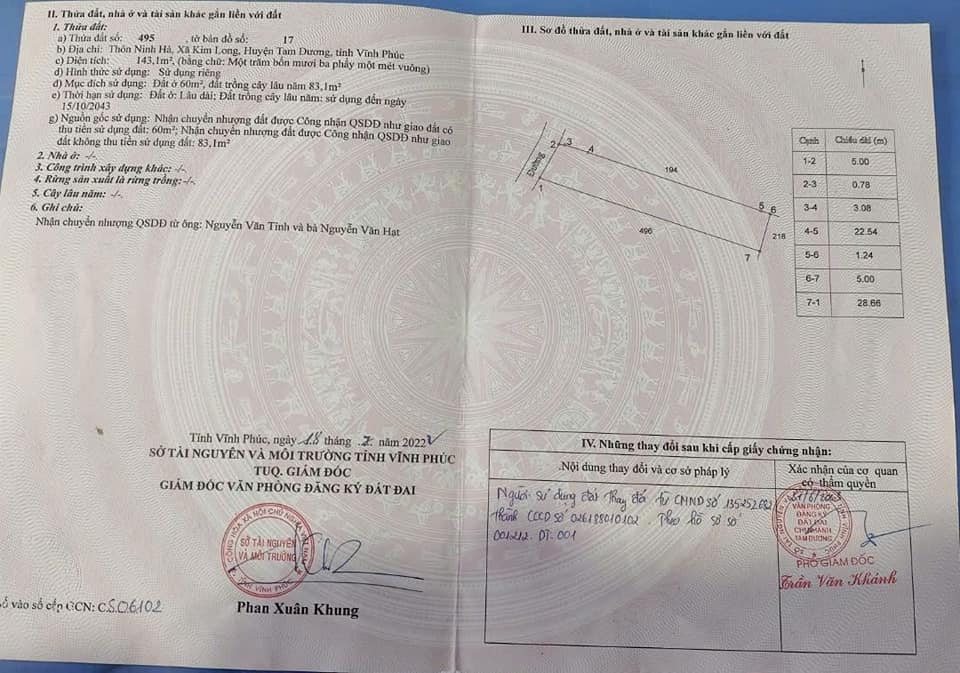 II. Thửa đất, nhà ở và tài sản khác gắn liền với đất
1. Thửa đất:
a) Thửa đất số: 495 , tờ bản đồ số: 17
b) Địa chỉ: Thôn Ninh Hà, Xã Kim Long, Huyện Tam Dương, tỉnh Vĩnh Phúc
c) Diện tích: 143,1m², (bằng chữ: Một trăm bốn mươi ba phẩy một mét vuông)
d) Hình thức sử dụng: Sử dụng riêng
đ) Mục đích sử dụng: Đất ở 60m², đất trồng cây lâu năm 83,1m²
e) Thời hạn sử dụng: Đất ở: Lâu dài; Đất trồng cây lâu năm: sử dụng đến ngày
15/10/2043
g) Nguồn gốc sử dụng: Nhận chuyển nhượng đất được Công nhận QSDĐ như giao đất có
thu tiền sử dụng đất: 60m²; Nhận chuyển nhượng đất được Công nhận QSDĐ như giao
đất không thu tiền sử dụng đất: 83,1m²
2. Nhà ở: -/-.
3. Công trình xây dựng khác: -/-.
4. Rừng sản xuất là rừng trồng:-/-.
5. Cây lâu năm: -/-.
6. Ghi chú:
Nhận chuyển nhượng QSDĐ từ ông: Nguyễn Văn Tính và bà Nguyễn Văn Hạt
Tỉnh Vĩnh Phúc, ngày 18 tháng 7 năm 2022
SỞ TÀI NGUYÊN VÀ MÔI TRƯỜNG TỈNH VĨNH PHÚC
TUQ. GIÁM ĐỐC
GIÁM ĐỐC VĂN PHÒNG ĐĂNG KÝ ĐẤT ĐAI
CỘNG HÒA XÃ HỘI CHỦ NGHĨA VIỆT NAM
SỞ TÀI NGUYÊN
VÀ MÔI TRƯỜNG
TỈNH VĨNH PHÚC
Phan Xuân Khung
Số vào sổ cấp GCN: CS06102
III. Sơ đồ thửa đất, nhà ở và tài sản khác gắn liền với đất
Đường
2 3 4
194
1
5 6
496
218
7
Cạnh Chiều dài (m)
1-2 5.00
2-3 0.78
3-4 3.08
4-5 22.54
5-6 1.24
6-7 5.00
7-1 28.66
IV. Những thay đổi sau khi cấp giấy chứng nhận:
Nội dung thay đổi và cơ sở pháp lý
Xác nhận của cơ quan
có thẩm quyền
Người sử dụng đất thay đổi từ CMND số 135252682
thành CCCD số 026188010102 Theo hồ sơ số
001212. DT. 001
VĂN PHÒNG
ĐĂNG KÝ
ĐẤT ĐAI
CHI NHÁNH
TAM DƯƠNG
PHÓ GIÁM ĐỐC
Trần Văn Khánh